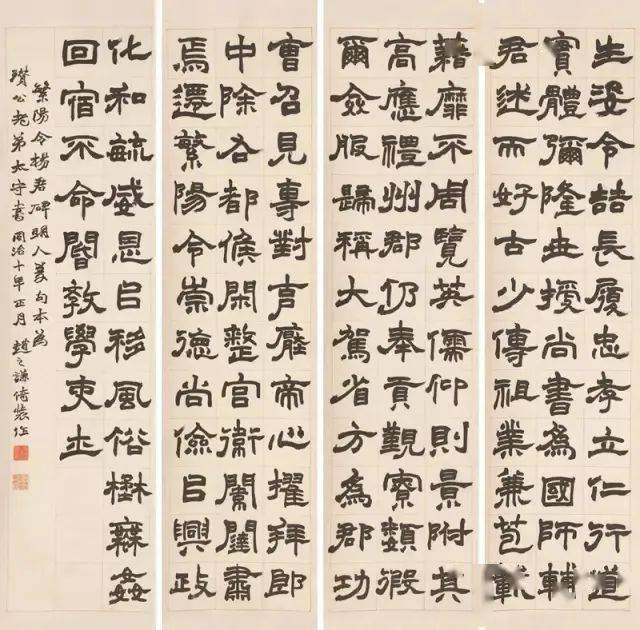 生姿令喆長履忠孝立仁行道
實體彌隆世授尚書為國師輔
君述而好古少傳祖業兼苞載
藉靡不周覽英儒仰則景附其
高應禮州郡仍奉貢覲寮類假
爾僉服歸稱大駕省方為郡功
曹召見專對言應帝心擢拜郎
中除右都候閑整官衛闈闥肅
焉遷繁陽令崇德尚儉㠯興政
化和毓威恩㠯移風俗楙姦
回宿不命閽敦學吏士
繁陽令楊君碑明人雙勾本為
瓚公老弟太守書同治十年正月趙之謙倚裝作